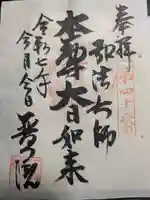 奉拝
弘法大師
本尊大日如来
令和七年
今月今日
普門院